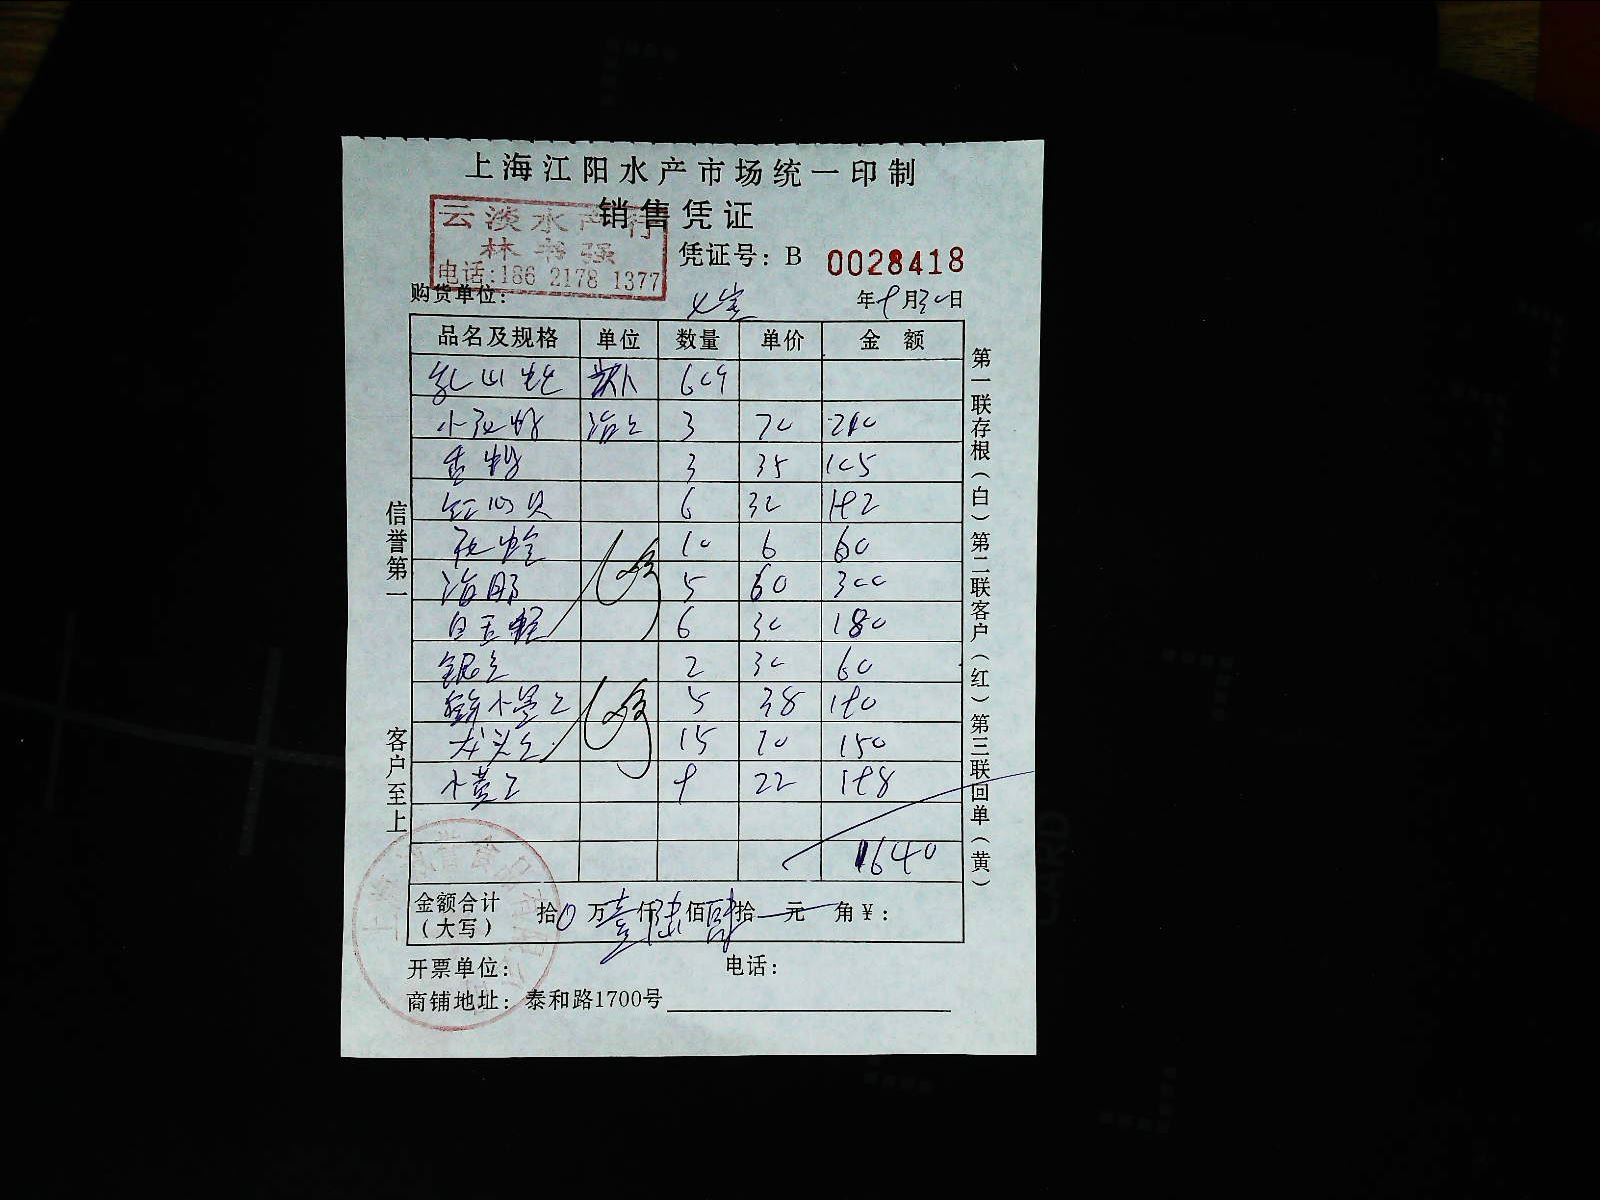 上海江阳水产市场统一印制
销售凭证
云淡水产行
林书强
电话:186 2178 1377
凭证号: B 0028418
购货单位:
年9月30日
品名及规格 单位 数量 单价 金额
乳山蚝 60个
小花螺 3 70 210
香螺 3 35 105
红心贝 6 32 192
花蛤 10 6 60
5 60 300
白玉蛏 6 30 180
2 30 60
5 38 190
龙头 15 10 150
小黄 9 22 198
1640
金额合计
(大写)
拾0万壹仟陆佰肆拾 元 角¥:
开票单位: 电话:
商铺地址: 泰和路1700号
信誉第一
客户至上
第一联存根(白)第二联客户(红)第三联回单(黄)